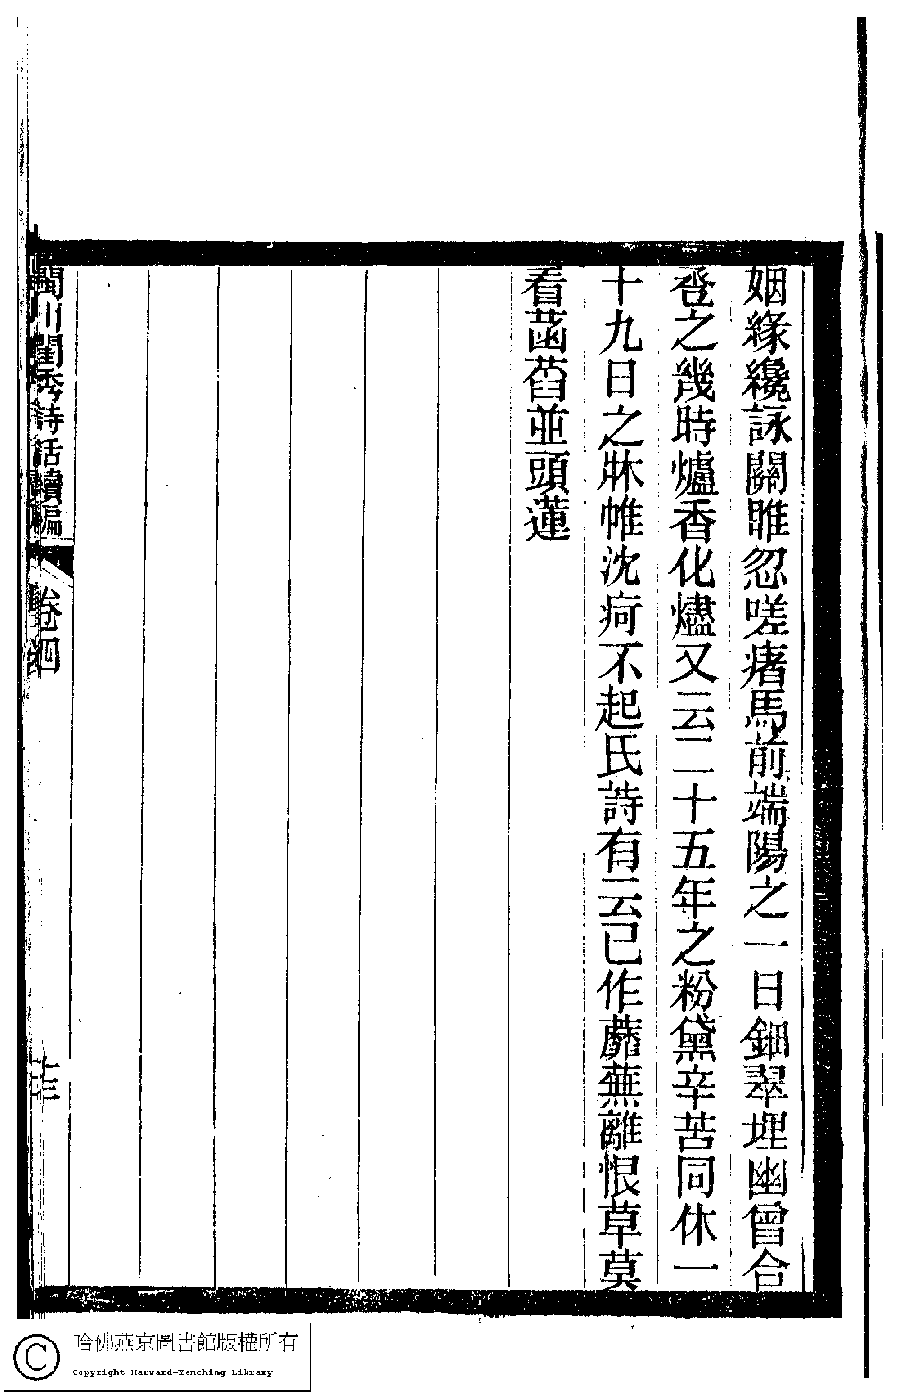 姻緣纔詠關雎忽嗟瘏馬前端陽之一日鈿翠埋幽曾合
巹之幾時爐香化燼又云二十五年之粉黛辛苦同休一
十九日之牀帷沈疴不起氏詩有云已作蘼蕪離恨草莫
看菡萏並頭蓮
閩川閨秀詩話續編
卷四
哈佛燕京圖書館版權所有
Copyright Harvard-Yenching Library